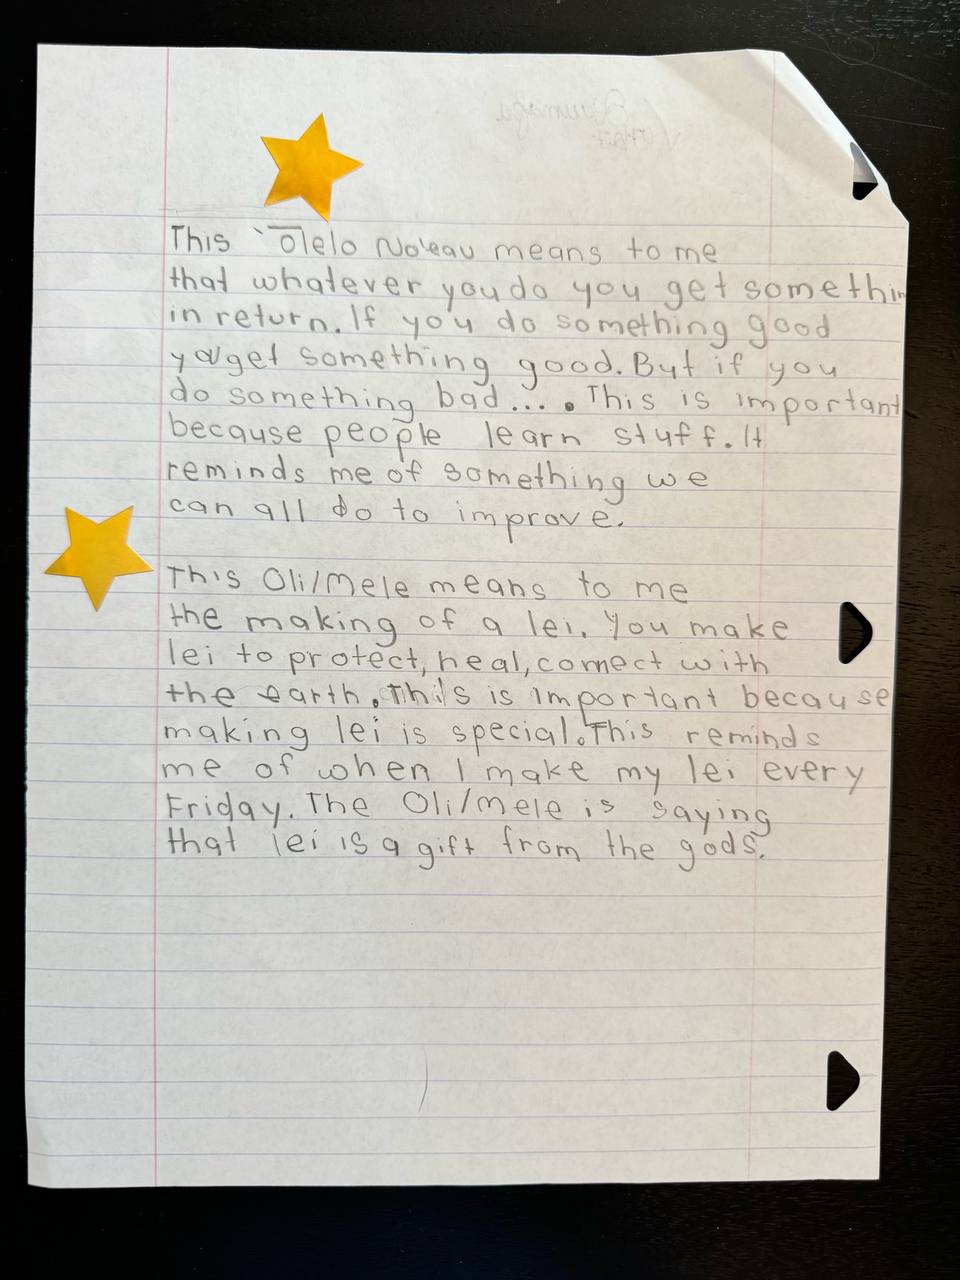 This `Ōlelo No'eau means to me
that whatever you do you get somethin
in return. If you do something good
you get something good. But if you
do something bad.... This is important
because people learn stuff. It
reminds me of something we
can all do to improve.
This Oli/Mele means to me
the making of a lei. You make
lei to protect, heal, connect with
the earth. This is important because
making lei is special. This reminds
me of when I make my lei every
Friday. The Oli/mele is saying
that lei is a gift from the gods.